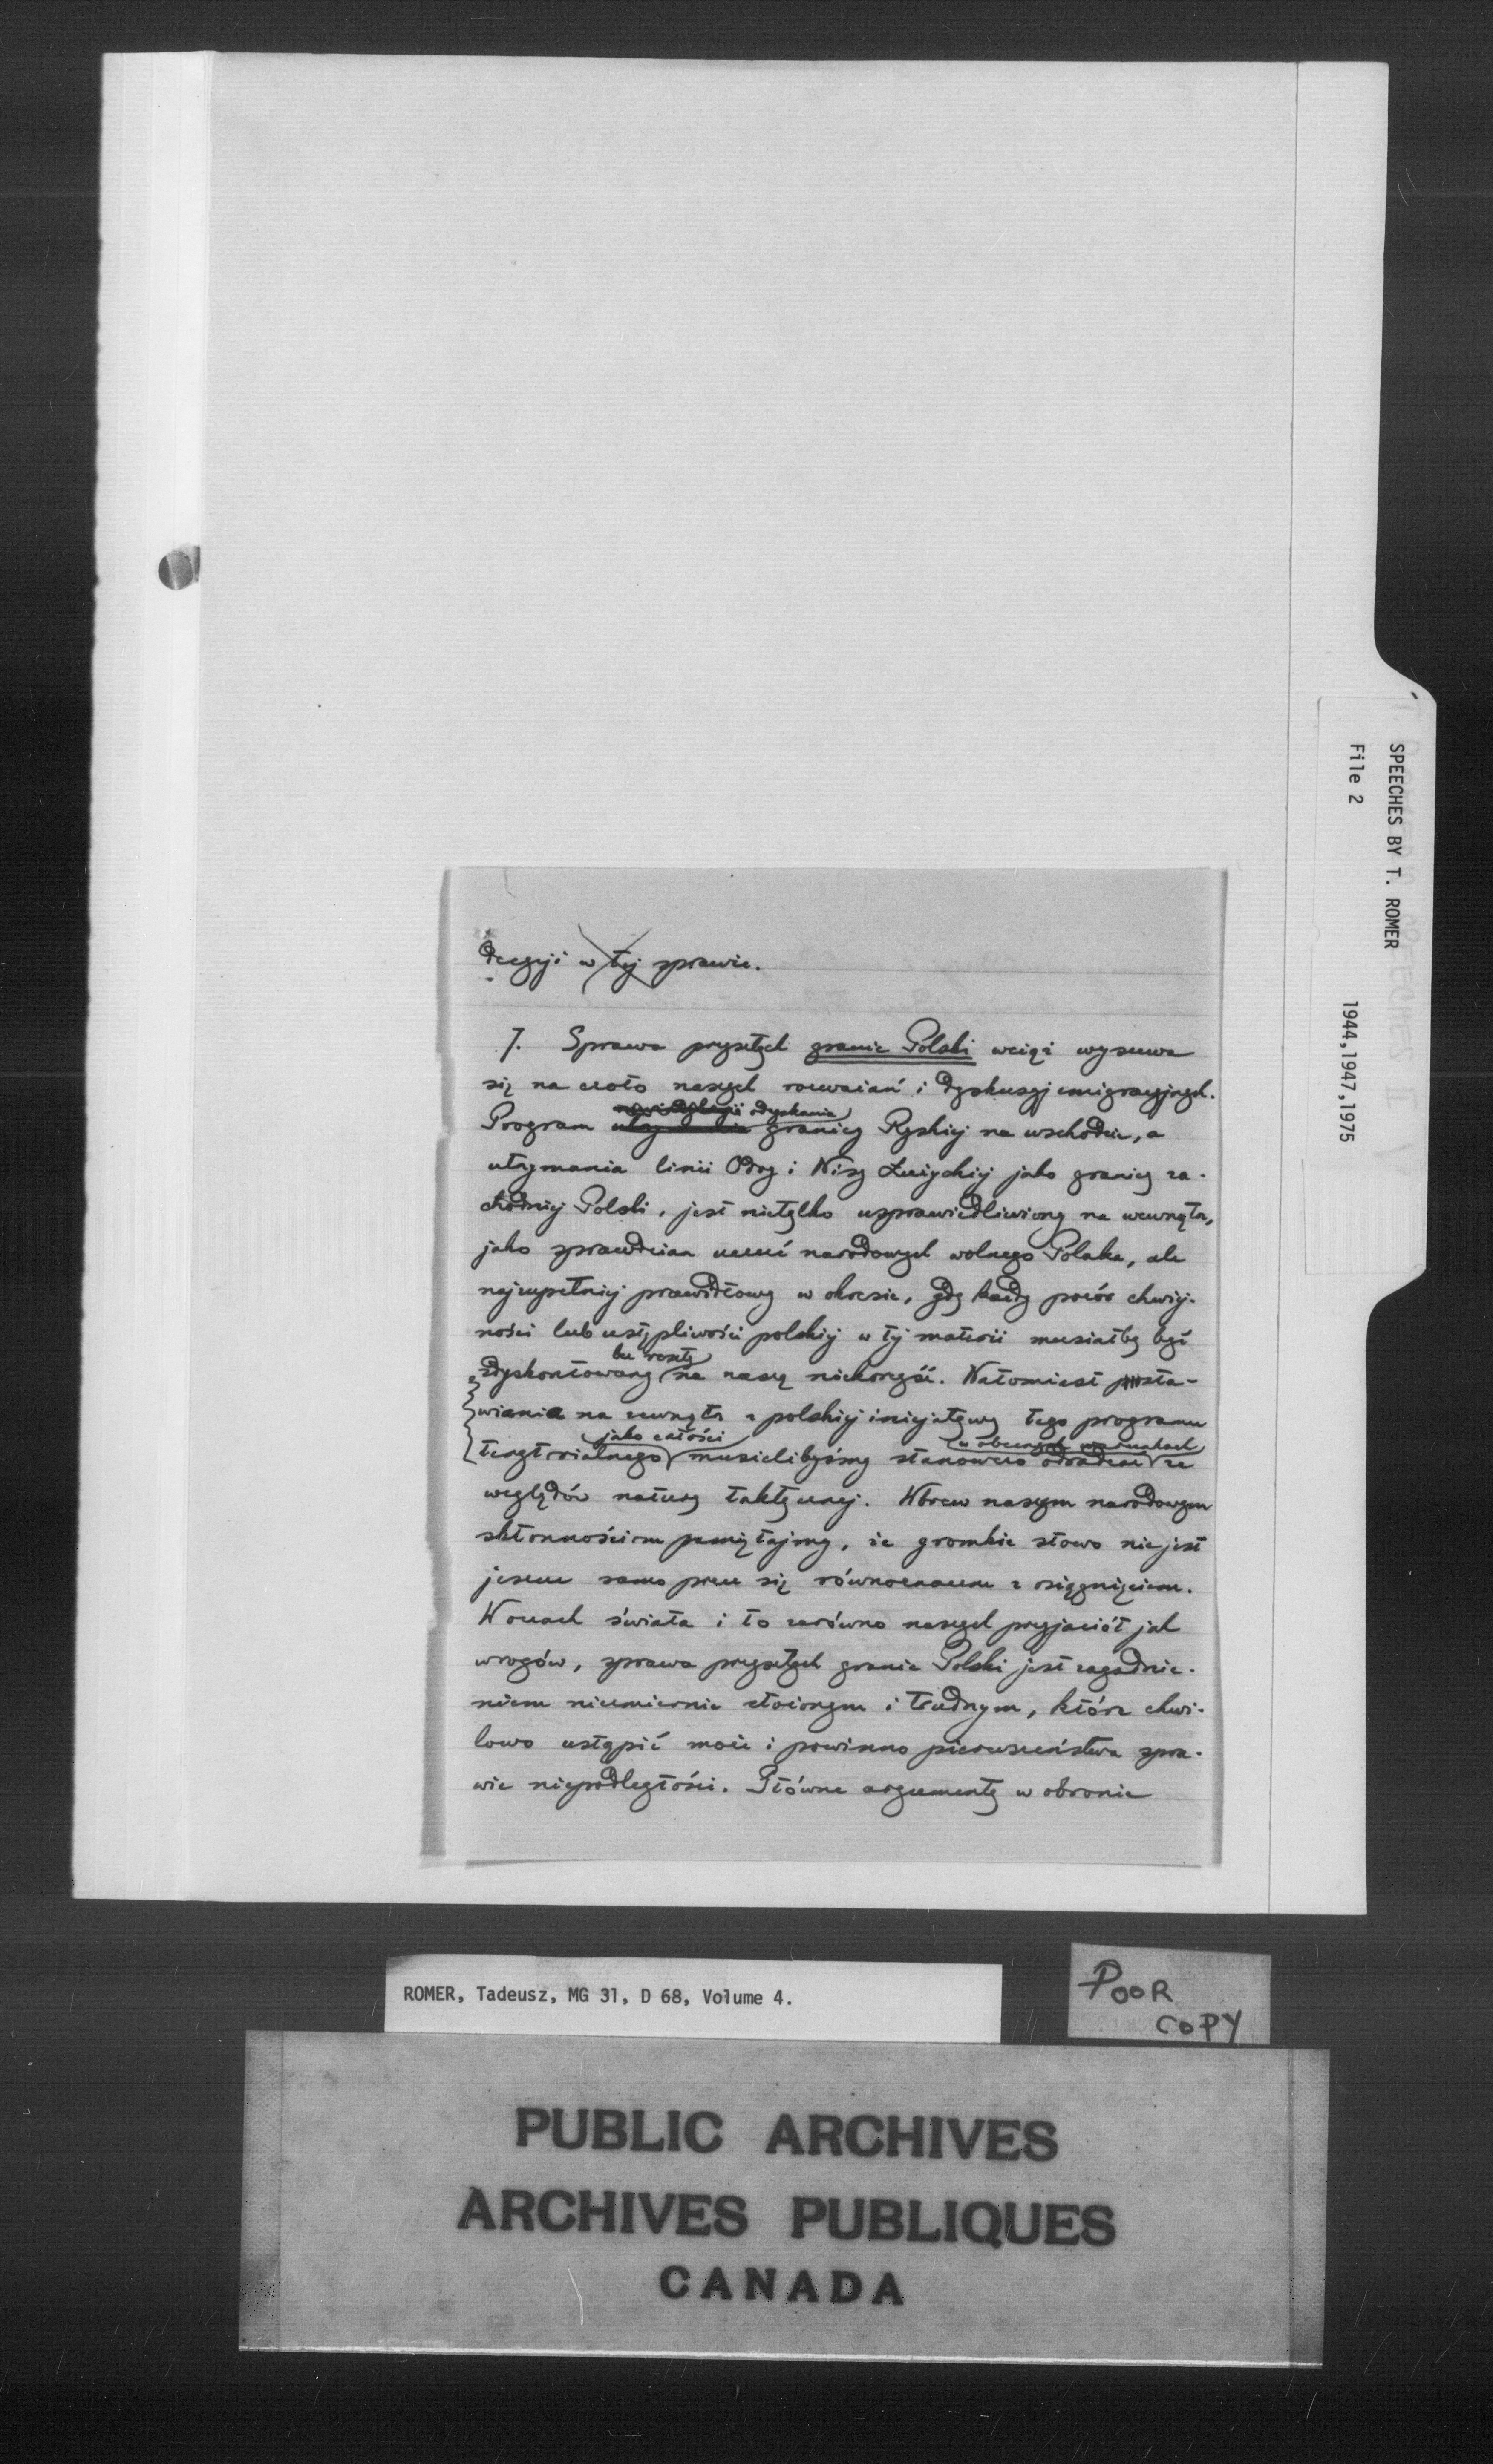 decyzji w tej sprawie.
7. Sprawa przyszłych granic Polski wciąż wysuwa
się na czoło naszych rozważań i dyskusyj emigracyjnych.
odzyskania
Program utrzymania granicy Ryskiej na wschodzie, a
utrzymania linii Odry i Nisy Łużyckiej jako granicy za-
chodniej Polski, jest nietylko usprawiedliwiony na wewnątrz,
jako sprawdzian uczuć narodowych wolnego Polaka, ale
najzupełniej prawidłowy w okresie, gdy każdy pozór chwiej-
ności lub ustępliwości polskiej w tej materii musiałby być
bez reszty
zdyskontowany na naszą niekorzyść. Natomiast posta-
wiania na zewnątrz z polskiej inicjatywy tego programu
jako całości w obecnych warunkach
terytorialnego musielibyśmy stanowczo odradzać ze
względów natury taktycznej. Wbrew naszym narodowym
skłonnościom pamiętajmy, że gromkie słowo nie jest
jeszcze samo przez się równoznaczne z osiągnięciem.
W oczach świata i to zarówno naszych przyjaciół jak
wrogów, sprawa przyszłych granic Polski jest zagadnie-
niem niezmiernie złożonym i trudnym, które chwi-
lowo ustąpić może i powinno pierwszeństwa spra-
wie niepodległości. Główne argumenty w obronie
SPEECHES BY T. ROMER
File 2
1944,1947,1975
ROMER, Tadeusz, MG 31, D 68, Volume 4.
POOR
COPY
PUBLIC ARCHIVES
ARCHIVES PUBLIQUES
CANADA